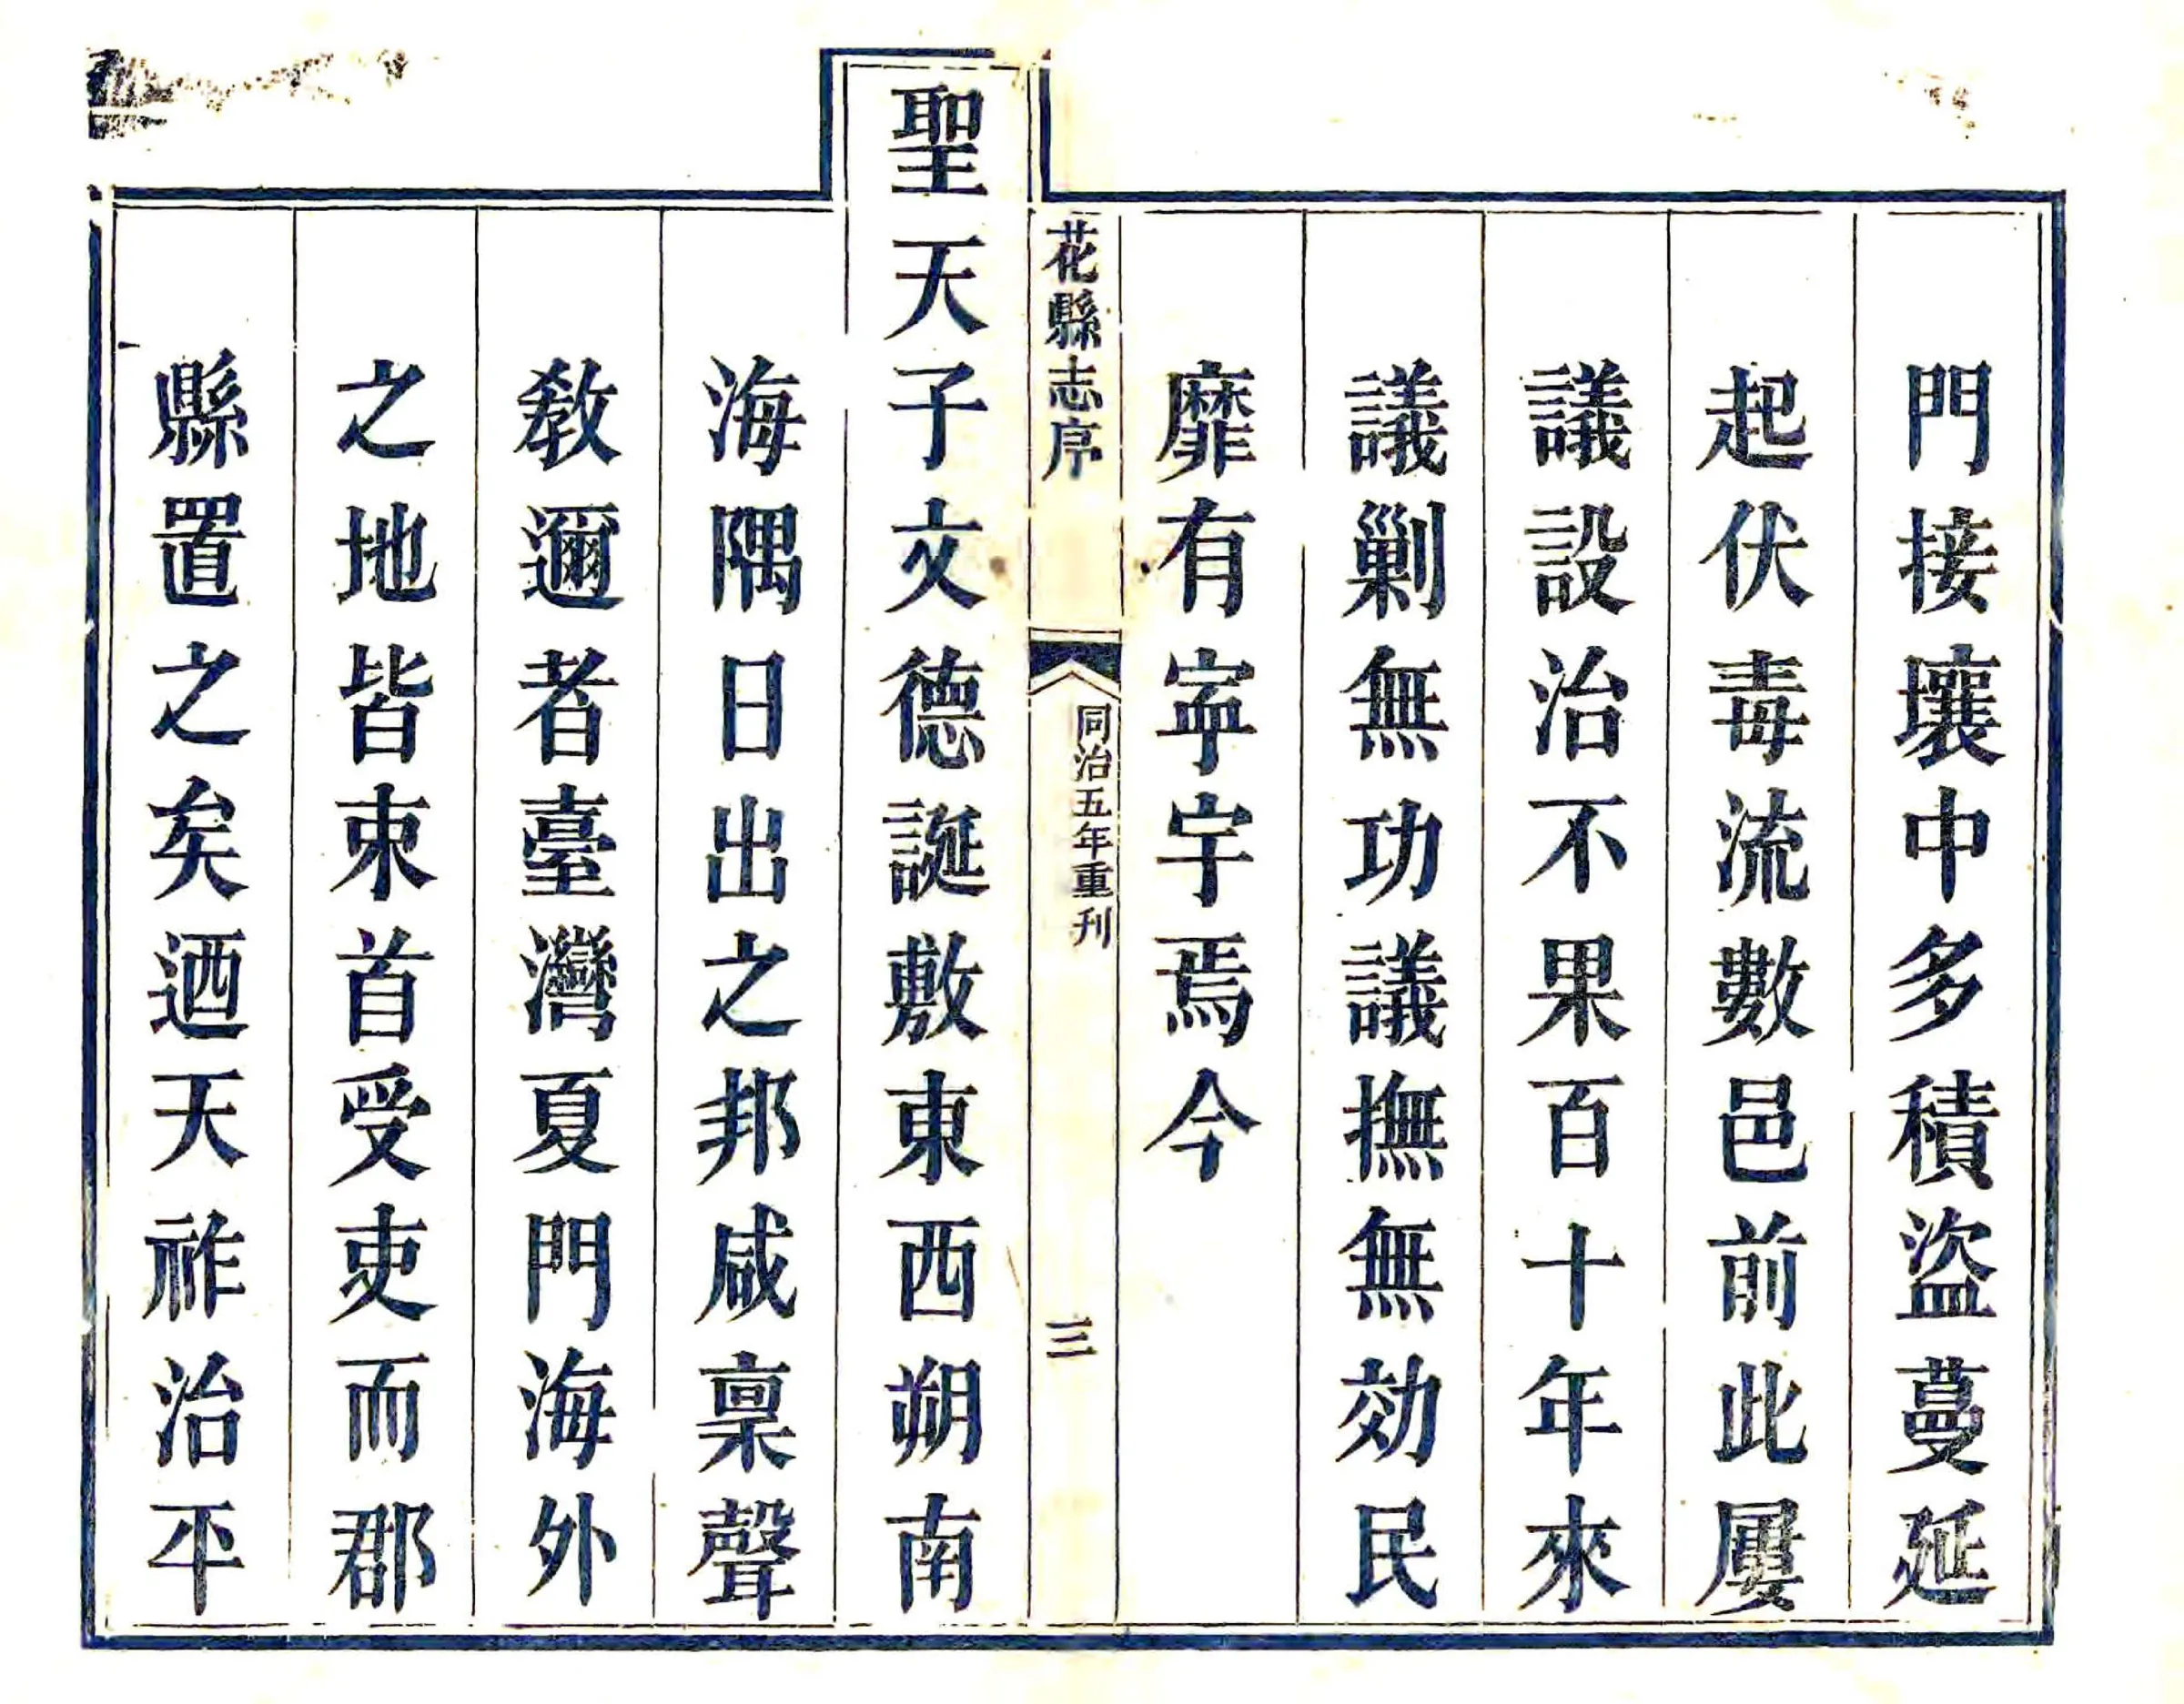 門接壤中多積盜蔓延
起伏毒流數邑前此屢
議設治不果百十年來
議剿無功議撫無効民
靡有寍宇焉今
花縣志序
同治五年重刋
三
聖天子文德誕敷東西朔南
海隅日出之邦咸稟聲
敎邇者臺灣夏門海外
之地皆束首受吏而郡
縣置之矣迺天祚治平